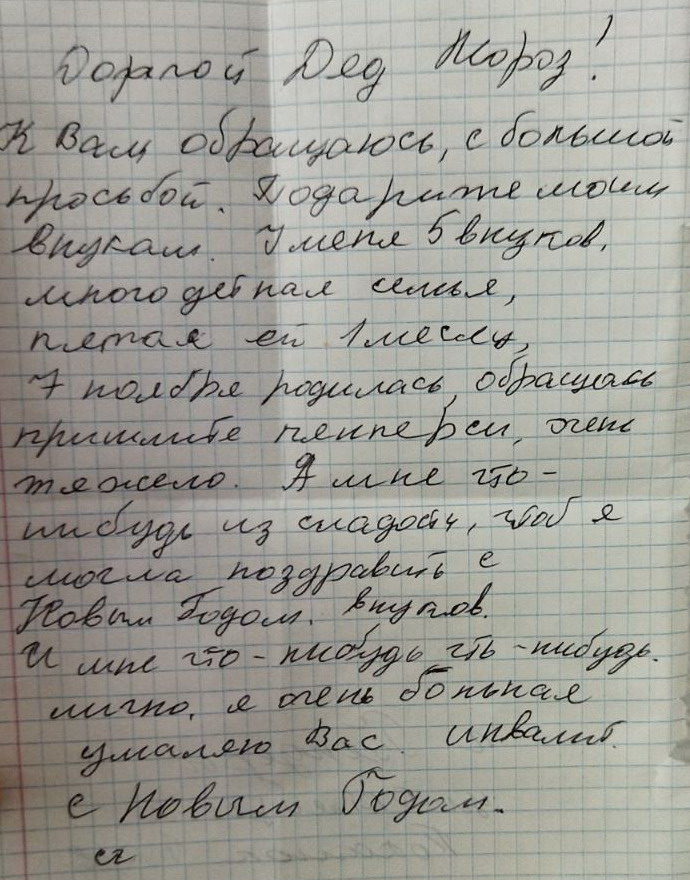 Дорагой Дед Мороз!
К Вам обращаюсь, с большой
просьбой. Подарите моим
внукам. У меня 5 внуков,
многодетная семья,
пятая ей 1 месяц,
7 ноября родилась, обращаюсь
пришлите пемперси, очень
тяжело. А мне что-
нибудь из сладости, чтоб я
могла поздравить с
Новым Годом. внуков.
И мне что-нибудь что-нибудь.
лично, я очень больная
умаляю Вас. инвалит.
с Новым Годом.